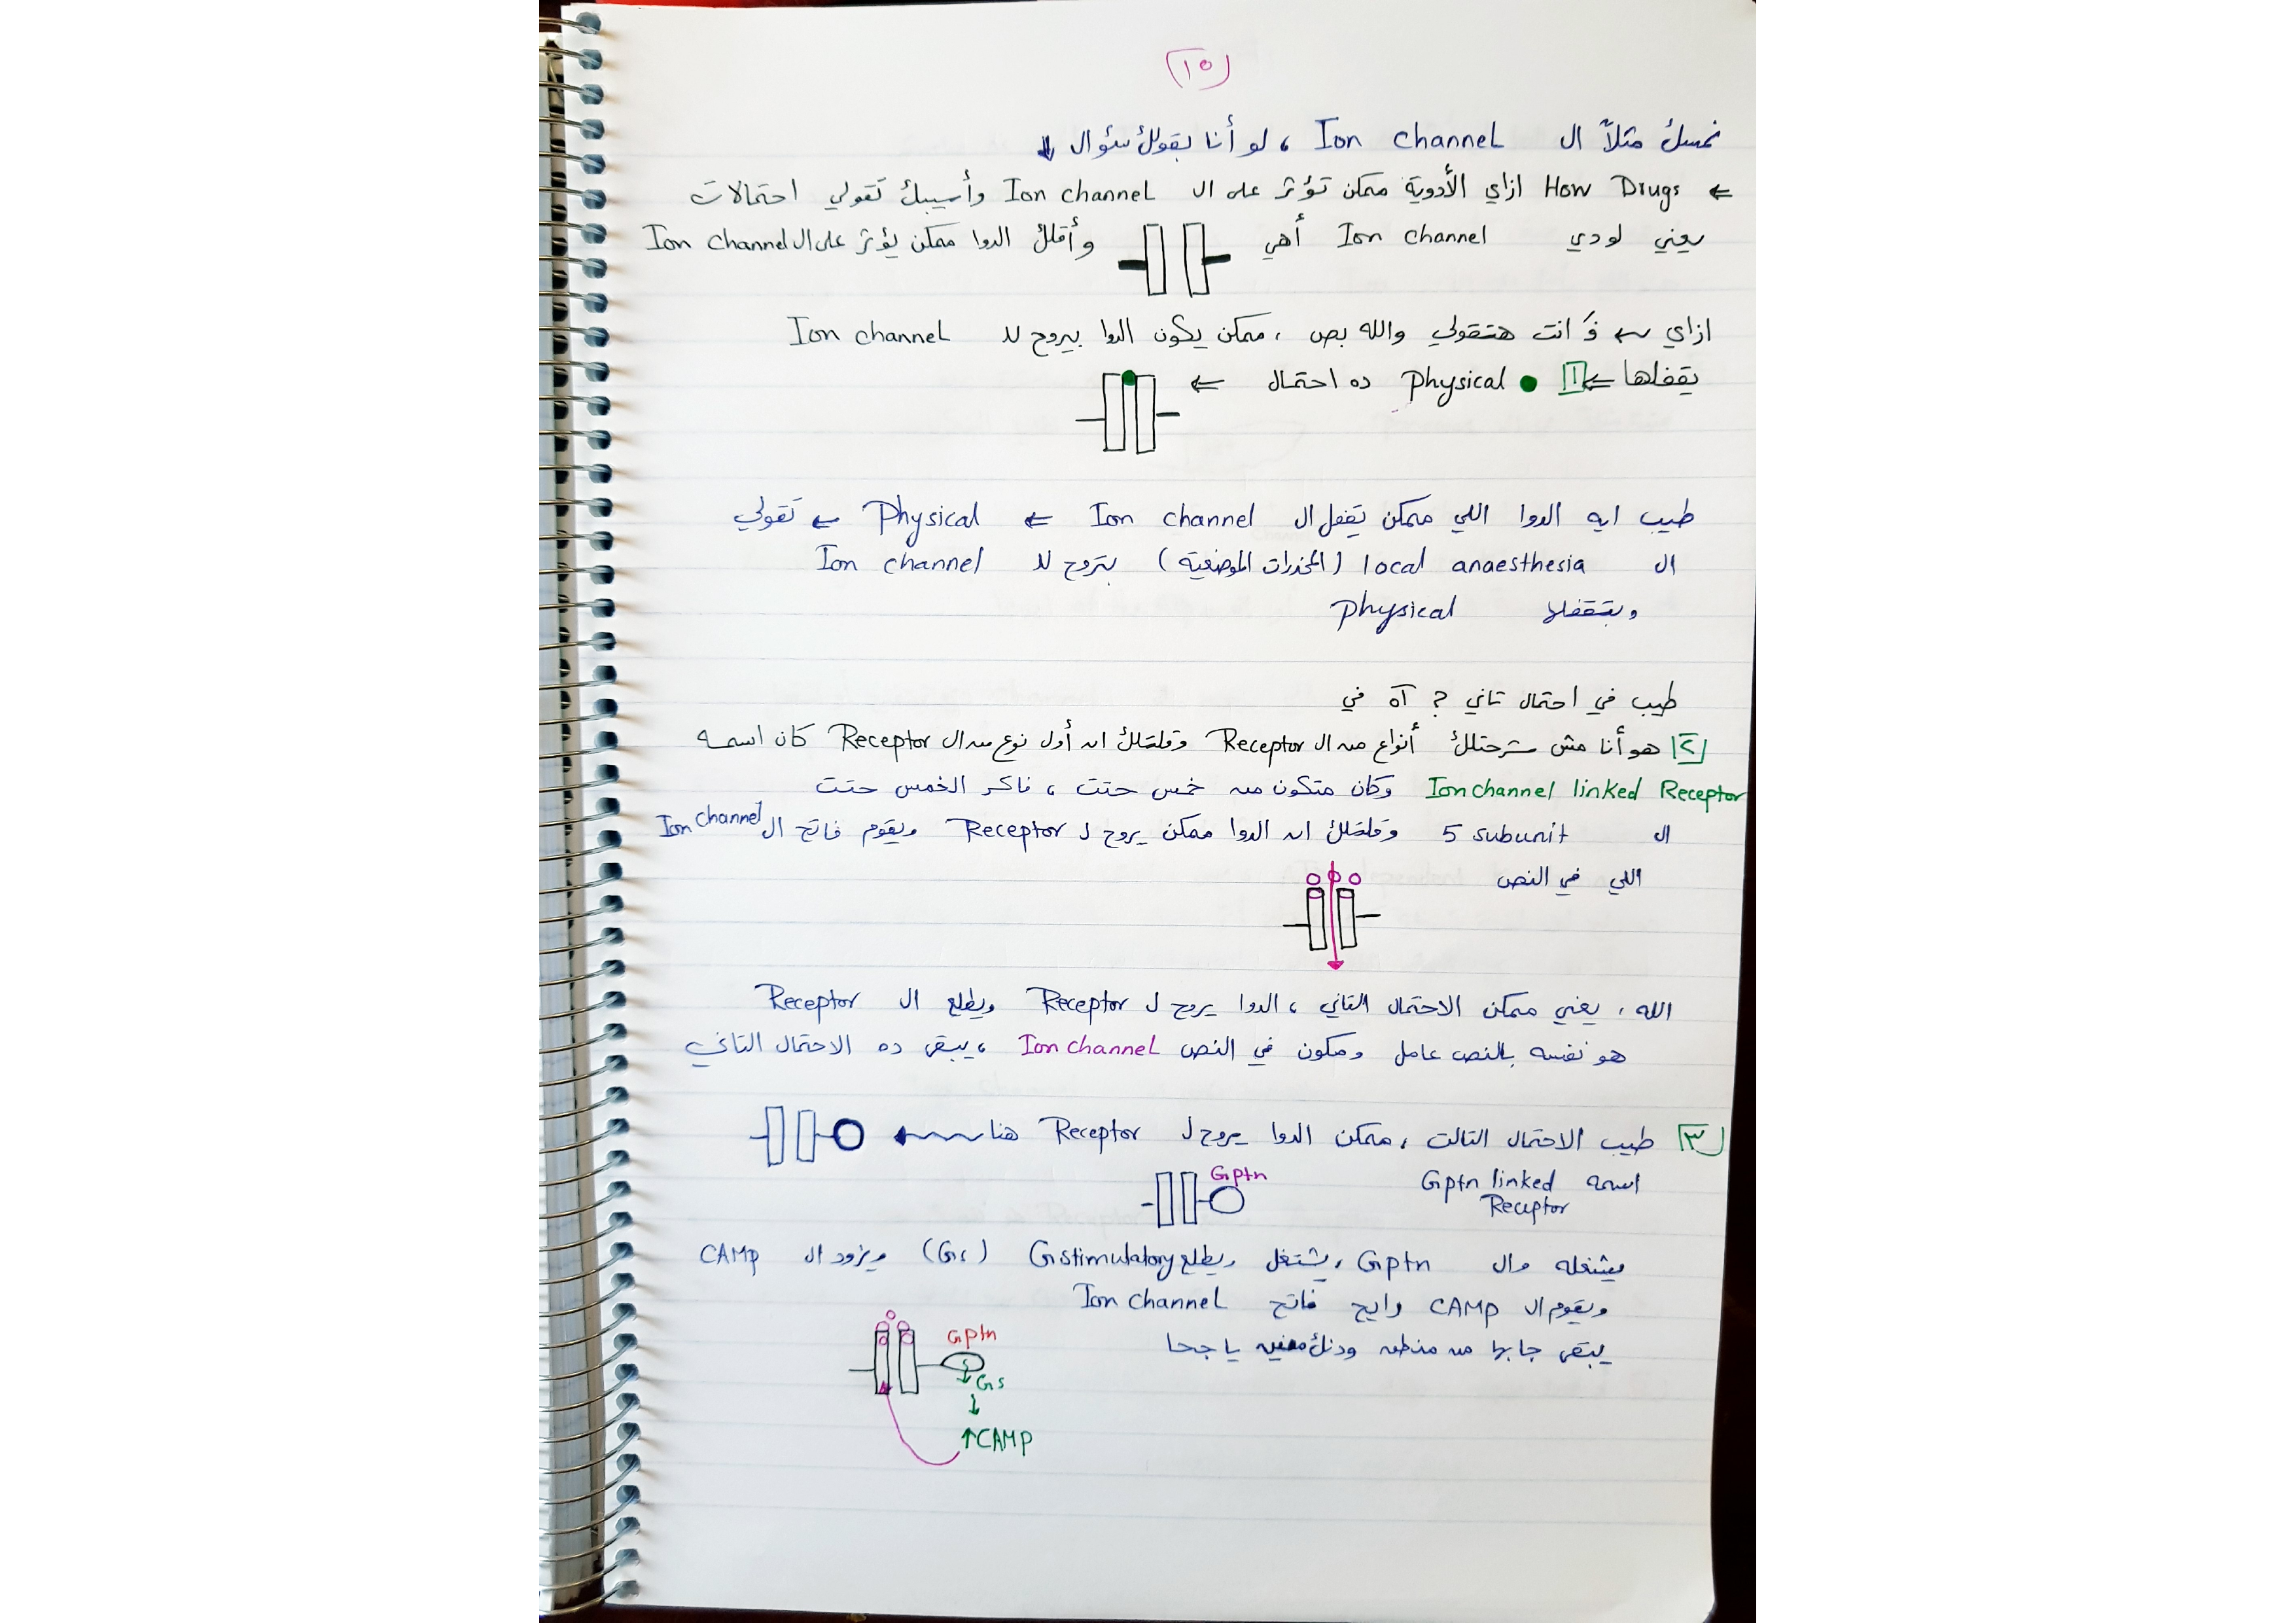 ١٥
نمسك مثلاً ال Ion channel ، لو أنا بقولك سؤال ↓
← How Drugs ازاي الأدوية ممكن تؤثر على ال Ion channel وأسيبك تقولي احتمالات
يعني لو دي Ion channel أهي وأقلك الدوا ممكن يؤثر على ال Ion channel
ازاي ← فَ انت هتقولي والله بص ، ممكن يكون الدوا بيروح لل Ion channel
يقفلها ← ١ Physical ده احتمال ←
طيب ايه الدوا اللي ممكن تقفل ال Ion channel ← Physical ← تقولي
ال local anaesthesia (المخدرات الموضعية) بتروح لل Ion channel
وبتقفلها physical
طيب في احتمال تاني ? آه في
٢ هو أنا مش شرحتلك أنواع من ال Receptor وقلتلك ان أول نوع من ال Receptor كان اسمه
Ion channel linked Receptor وكان متكون من خمس حتت ، فاكر الخمس حتت
ال 5 subunit وقلتلك ان الدوا ممكن يروح ل Receptor ويقوم فاتح ال Ion channel
اللي في النص
الله ، يعني ممكن الاحتمال التاني ، الدوا يروح ل Receptor ويطلع ال Receptor
هو نفسه بالنص عامل ومكون في النص Ion channel ، يبقى ده الاحتمال التاني
٣ طيب الاحتمال التالت ، ممكن الدوا يروح ل Receptor هنا ←
اسمه Gptn linked Receptor
Gptn
يشغله وال Gptn ، يشتغل ويطلع Gstimulatory (Gs) ويزود ال CAMP
ويقوم ال CAMP رايح فاتح Ion channel
يبقى جابها من منطقه ودنك منين يا جحا
Gptn
↓ Gs
↓
↑CAMP